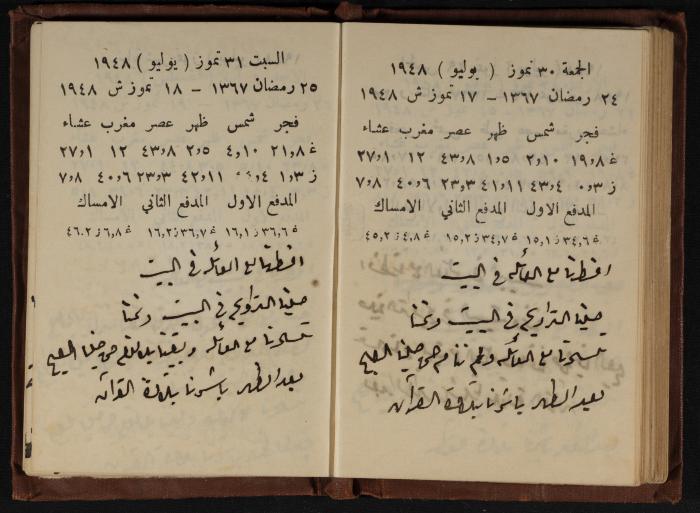 الجمعة ٣٠ تموز ( يوليو ) ١٩٤٨
٢٤ رمضان ١٣٦٧ – ١٧ تموز ش ١٩٤٨
فجر شمس ظهر عصر مغرب عشاء
غ ١٩٫٨ ١٠٫٢ ٥٫١ ٤٣٫٨ ١٢ ٢٧٫١
ز ٣٫٠ ٤٣٫٤ ٤١٫١١ ٢٣٫٣ ٤٠٫٦ ٧٫٨
المدفع الاول المدفع الثاني الامساك
غ ٣٤٫٦ ز ١٥٫١ غ ٣٤٫٧ ز ١٥٫٢ غ ٤٫٨ ز ٤٥٫٢
افطرنا مع العائلة في البيت
صلينا التراويح في البيت ونمنا
تسحرنا مع العائلة ولم ننام حتى صلينا الصبح
بعد الظهر باشرنا بتلاوة القرآن
السبت ٣١ تموز ( يوليو ) ١٩٤٨
٢٥ رمضان ١٣٦٧ – ١٨ تموز ش ١٩٤٨
فجر شمس ظهر عصر مغرب عشاء
غ ٢١٫٨ ١٠٫٤ ٥٫٢ ٤٣٫٨ ١٢ ٢٧٫١
ز ٣٫١ ٤٢٫١١ ٢٣٫٣ ٤٠٫٦ ٧٫٨
المدفع الاول المدفع الثاني الامساك
غ ٣٦٫٦ ز ١٦٫١ غ ٣٦٫٧ ز ١٦٫٢ غ ٦٫٨ ز ٤٦٫٢
افطرنا مع العائلة في البيت
صلينا التراويح في البيت ونمنا
تسحرنا مع العائلة وبقينا حتى صلينا الصبح
بعد الظهر باشرنا بتلاوة القرآن